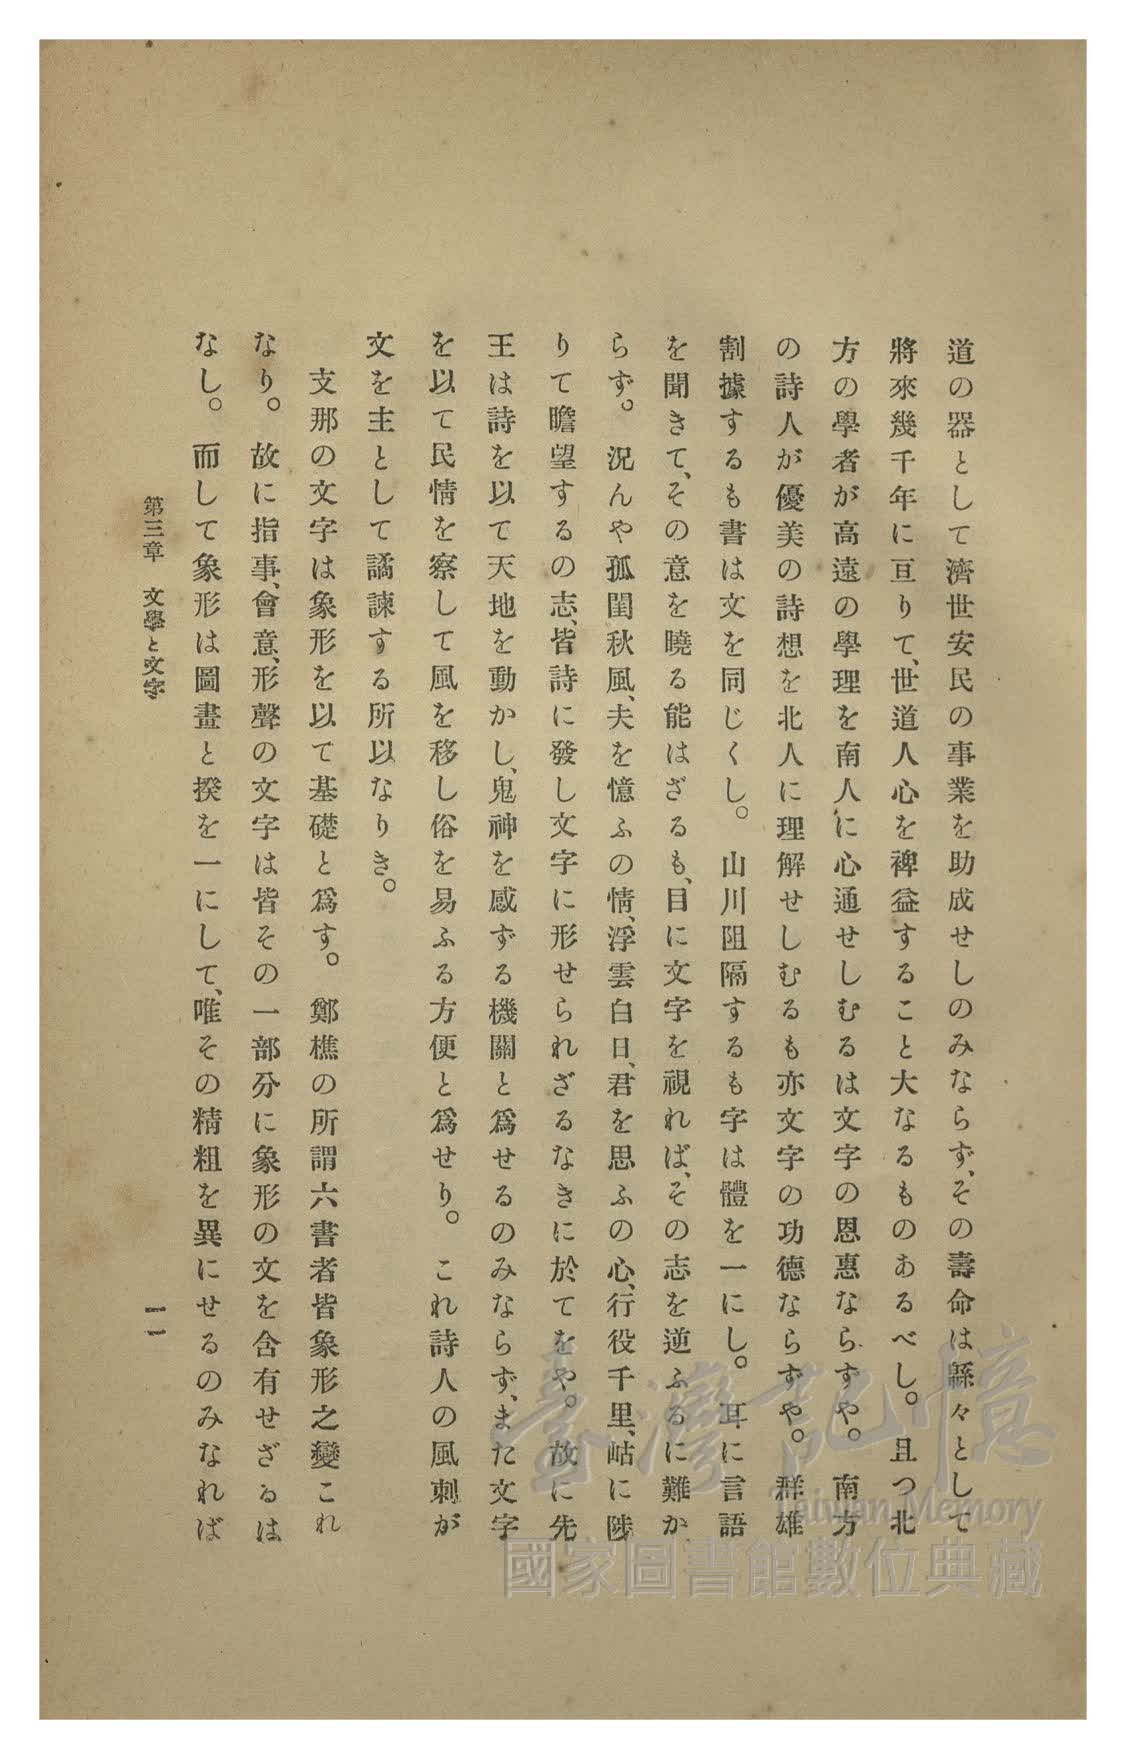 道の器として濟世安民の事業を助成せしのみならず、その壽命は緜々として
將來幾千年に亙りて、世道人心を裨益すること大なるものあるべし。且つ北
方の學者が高遠の學理を南人に心通せしむるは文字の恩惠ならずや。南方
の詩人が優美の詩想を北人に理解せしむるも亦文字の功德ならずや。群雄
割據するも書は文を同じくし。山川阻隔するも字は體を一にし。耳に言語
を聞きて、その意を曉る能はざるも、目に文字を視れば、その志を逆ふるに難か
らず。況んや孤閨秋風、夫を憶ふの情、浮雲白日、君を思ふの心、行役千里、岵に陟
りて瞻望するの志、皆詩に發し文字に形せられざるなきに於てをや。故に先
王は詩を以て天地を動かし、鬼神を感ずる機關と爲せるのみならず、また文字
を以て民情を察して風を移し俗を易ふる方便と爲せり。これ詩人の風刺が
文を主として譎諫する所以なりき。
支那の文字は象形を以て基礎と爲す。鄭樵の所謂六書者皆象形之變これ
なり。故に指事、會意、形聲の文字は皆その一部分に象形の文を含有せざるは
なし。而して象形は圖畫と揆を一にして、唯その精粗を異にせるのみなれば
第三章 文學と文字
一一
臺灣記憶
Taiwan Memory
國家圖書館數位典藏